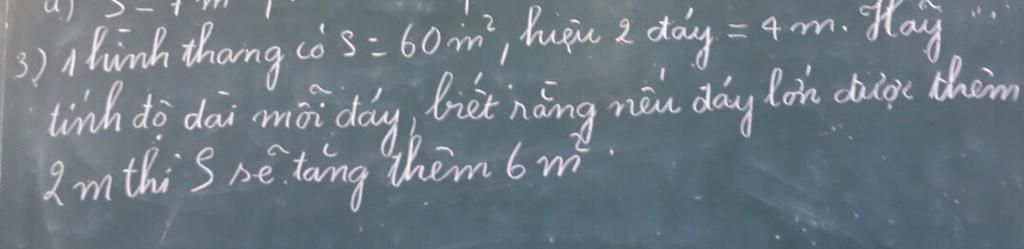 a) S = 7 m
3) 1 hình thang có S = 60 m², hiệu 2 đáy = 4 m. Hãy
tính độ dài mỗi đáy, biết rằng nếu đáy lớn được thêm
2 m thì S sẽ tăng thêm 6 m²